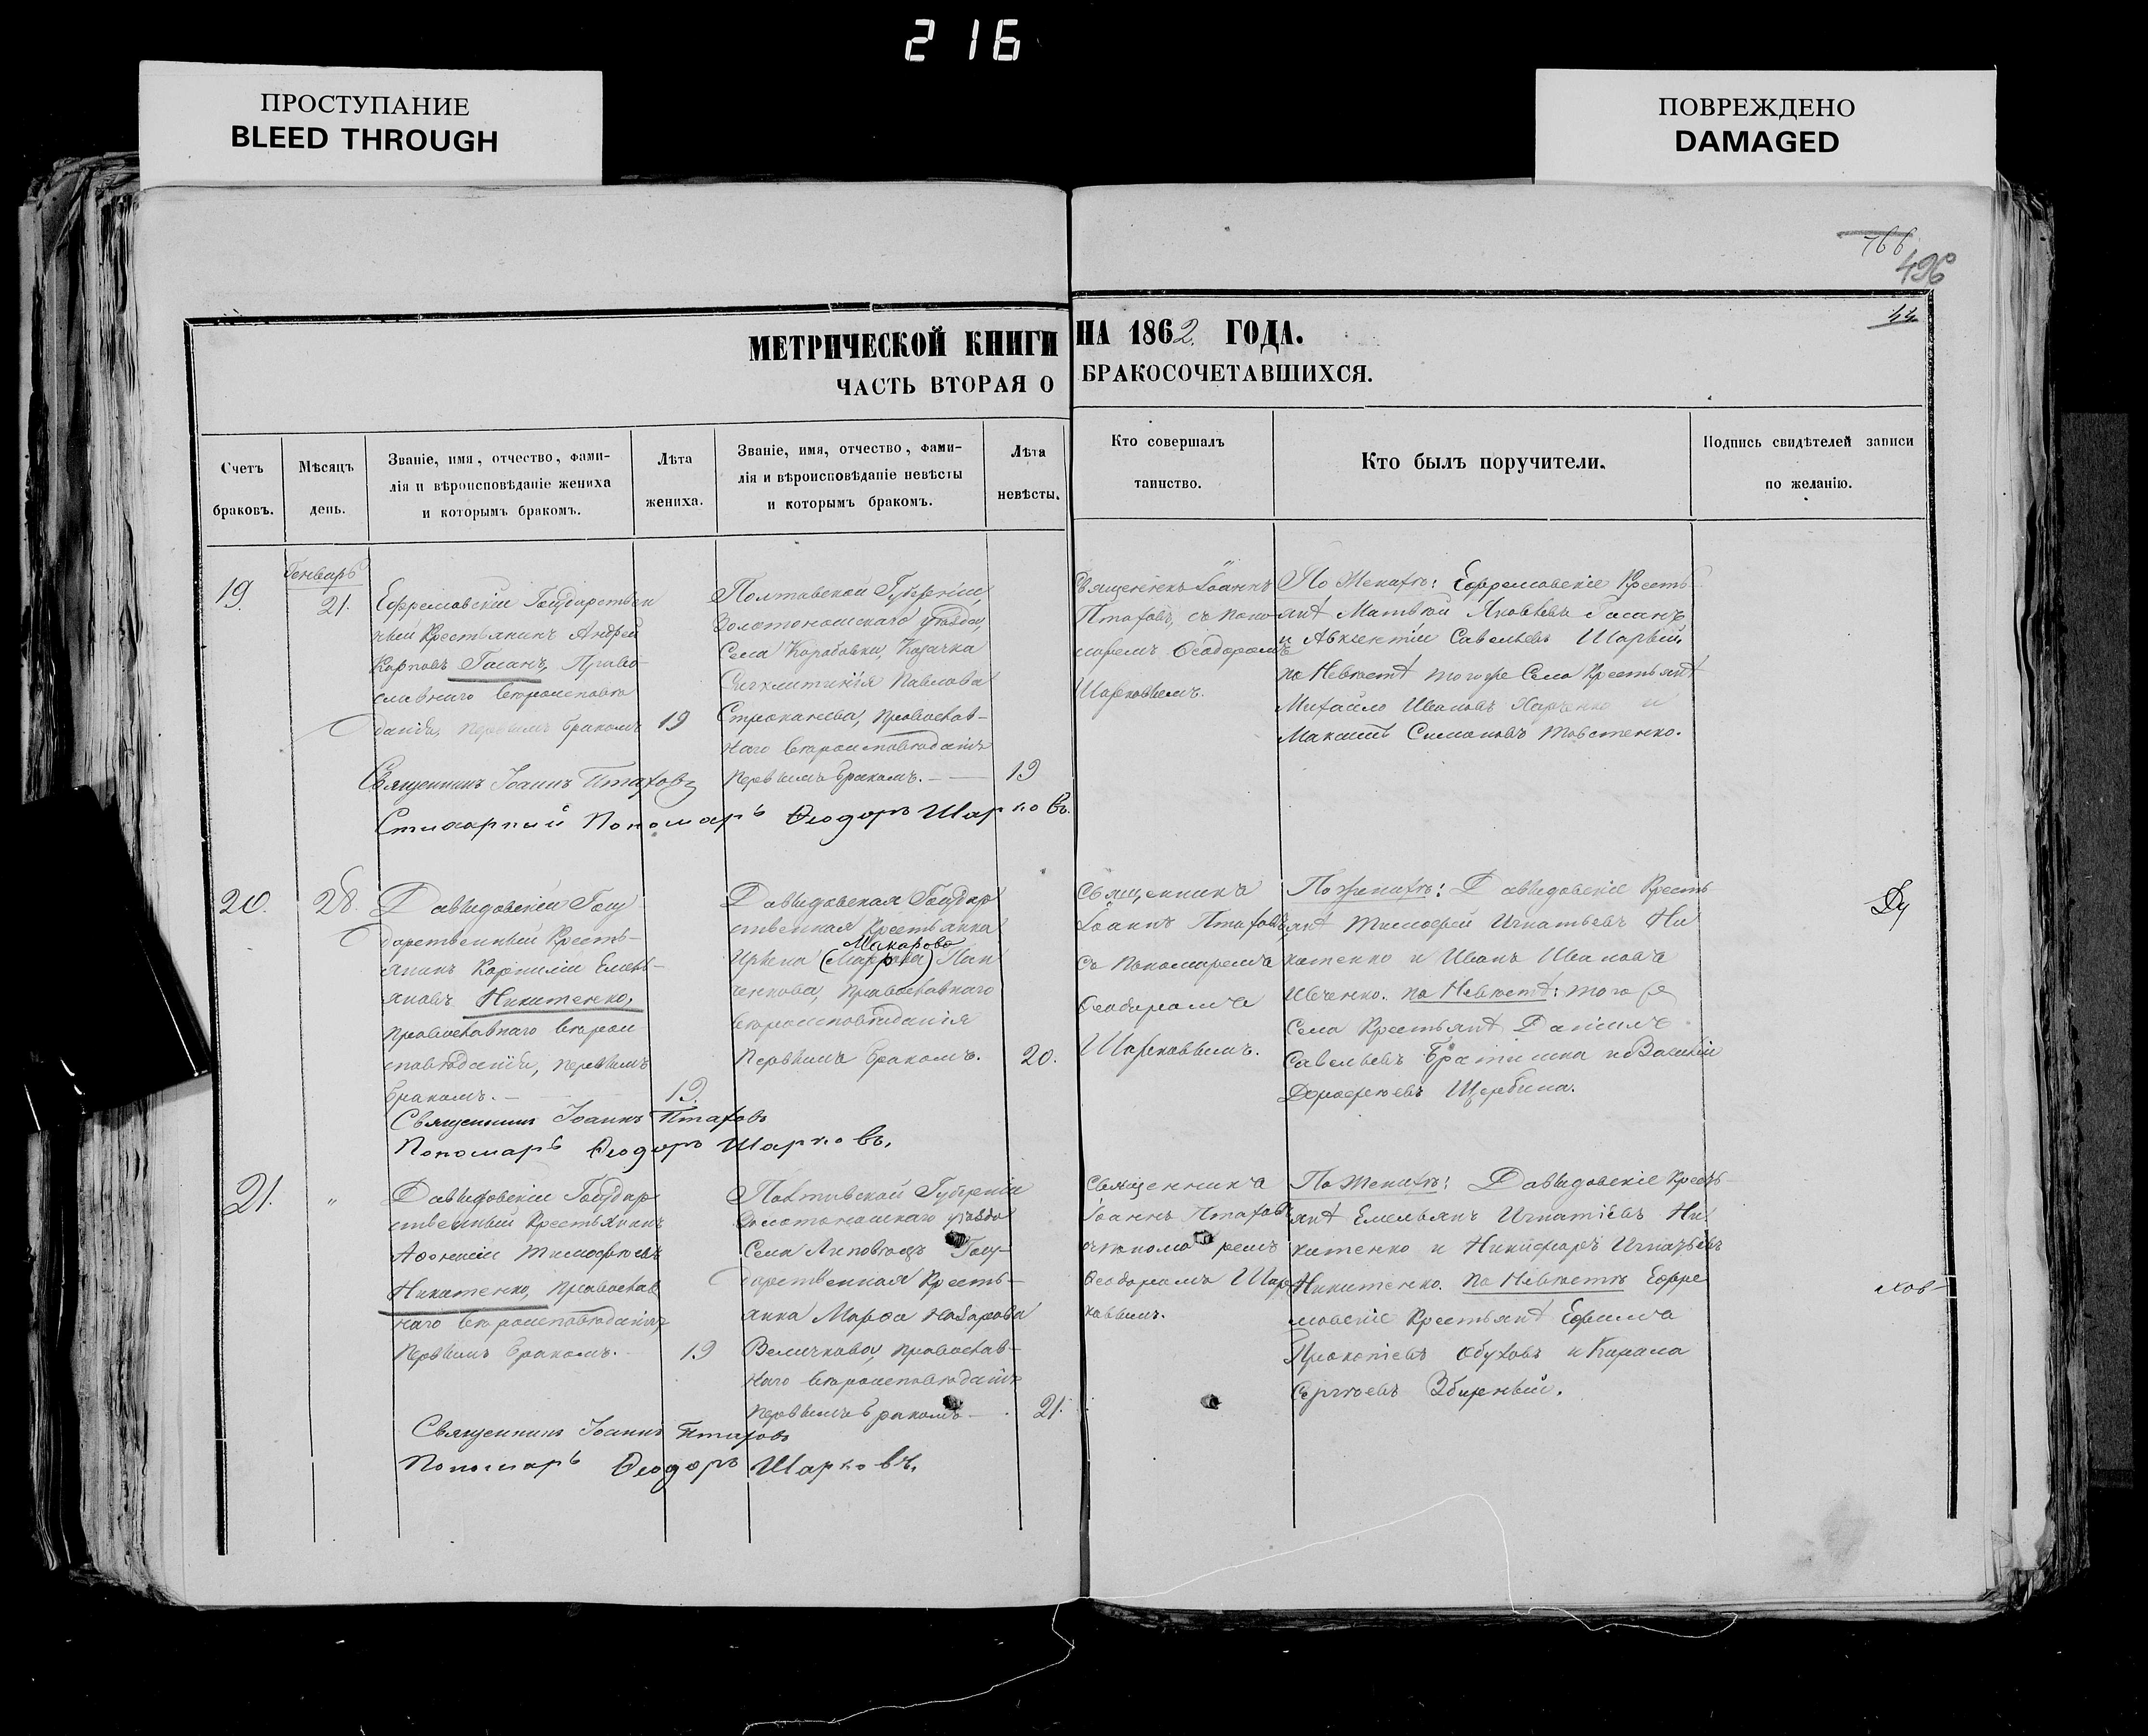 216
ПРОСТУПАНИЕ
BLEED THROUGH
ПОВРЕЖДЕНО
DAMAGED
766
496
44
МЕТРИЧЕСКОЙ КНИГИ НА 1862 ГОДА.
ЧАСТЬ ВТОРАЯ О БРАКОСОЧЕТАВШИХСЯ.
Счетъ
браковъ.
Мѣсяцъ
день.
Званіе, имя, отчество, фами-
лія и вѣроисповѣданіе жениха
и которымъ бракомъ.
Лѣта
жениха.
Званіе, имя, отчество, фами-
лія и вѣроисповѣданіе невѣсты
и которымъ бракомъ.
Лѣта
невѣсты.
Кто совершалъ
таинство.
Кто былъ поручители.
Подпись свидѣтелей записи
по желанію.
19.
Генварь
21.
Ефремовскій Государствен
ный Крестьянинъ Андрей
Карповъ Гасанъ, Право-
славнаго вѣроисповѣ
данія, первымъ бракомъ
19
Полтавской Губерніи,
Золотоношскаго уѣзда,
Села Коробовки, Козачка
Павлова
Строканева, православ-
наго вѣроисповѣданія
первымъ бракомъ.
19
Священникъ Іоаннъ
Птаховъ, съ поно-
маремъ Феодоромъ
Шарковымъ.
По Женихѣ: Ефремовскіе Кресть
янѣ Матвѣй Яковлевъ Гасанъ
и Авксентій Савельевъ Шарый,
по Невѣстѣ того же Села Крестьянѣ
Михайло Ивановъ Харченко и
Максимъ Симоновъ Товстенко.
Священникъ Іоаннъ Птаховъ
Стихарный Пономарь Феодоръ Шарковъ.
20.
28.
Давыдовскій Госу
дарственный Кресть-
янинъ Корнилій Емель-
яновъ Никитенко,
православнаго вѣрои
сповѣданія, первымъ
бракомъ.
19.
Давыдовская Государ
ственная Крестьянка
Макарова
Ирина (Маркова) Пан
ченкова, православнаго
вѣроисповѣданія
первымъ бракомъ.
20.
Священникъ
Іоаннъ Птаховъ,
съ Пономаремъ
Феодоромъ
Шарковымъ.
По женихѣ: Давыдовскіе Кресть-
янѣ Тимофей Игнатьевъ Ни
китенко и Иванъ Ивановъ
Ивченко. по Невѣстѣ: того же
Села Крестьянѣ Данилъ
Савельевъ Братишка и Василій
Дорофѣевъ Щербина.
Ду
Священникъ Іоаннъ Птаховъ
Пономарь Феодоръ Шарковъ.
21.
"
Давыдовскій Государ
ственный Крестьянинъ
Афонасій Тимофѣевъ
Никитенко, православ
наго вѣроисповѣданія,
первымъ бракомъ.
19
Полтавской Губерніи
Золотоношскаго уѣзда
Села Липовецъ Госу-
дарственная Кресть-
янка Марфа Назарова
Величкова, православ-
наго вѣроисповѣданія
первымъ бракомъ
21.
Священникъ
Іоаннъ Птаховъ
съ пономаремъ
Феодоромъ Шар
ковымъ.
По Женихѣ: Давыдовскіе Кресть-
янѣ Емельянъ Игнатіевъ Ни
китенко и Никифоръ Игнатьевъ
Никитенко. По Невѣстѣ Ефре
мовскіе Крестьянѣ Ефимъ
Прокопіевъ Обуховъ и Кирила
Сергѣевъ Збирный.
хов-
Священникъ Іоаннъ Птаховъ
Пономарь Феодоръ Шарковъ.